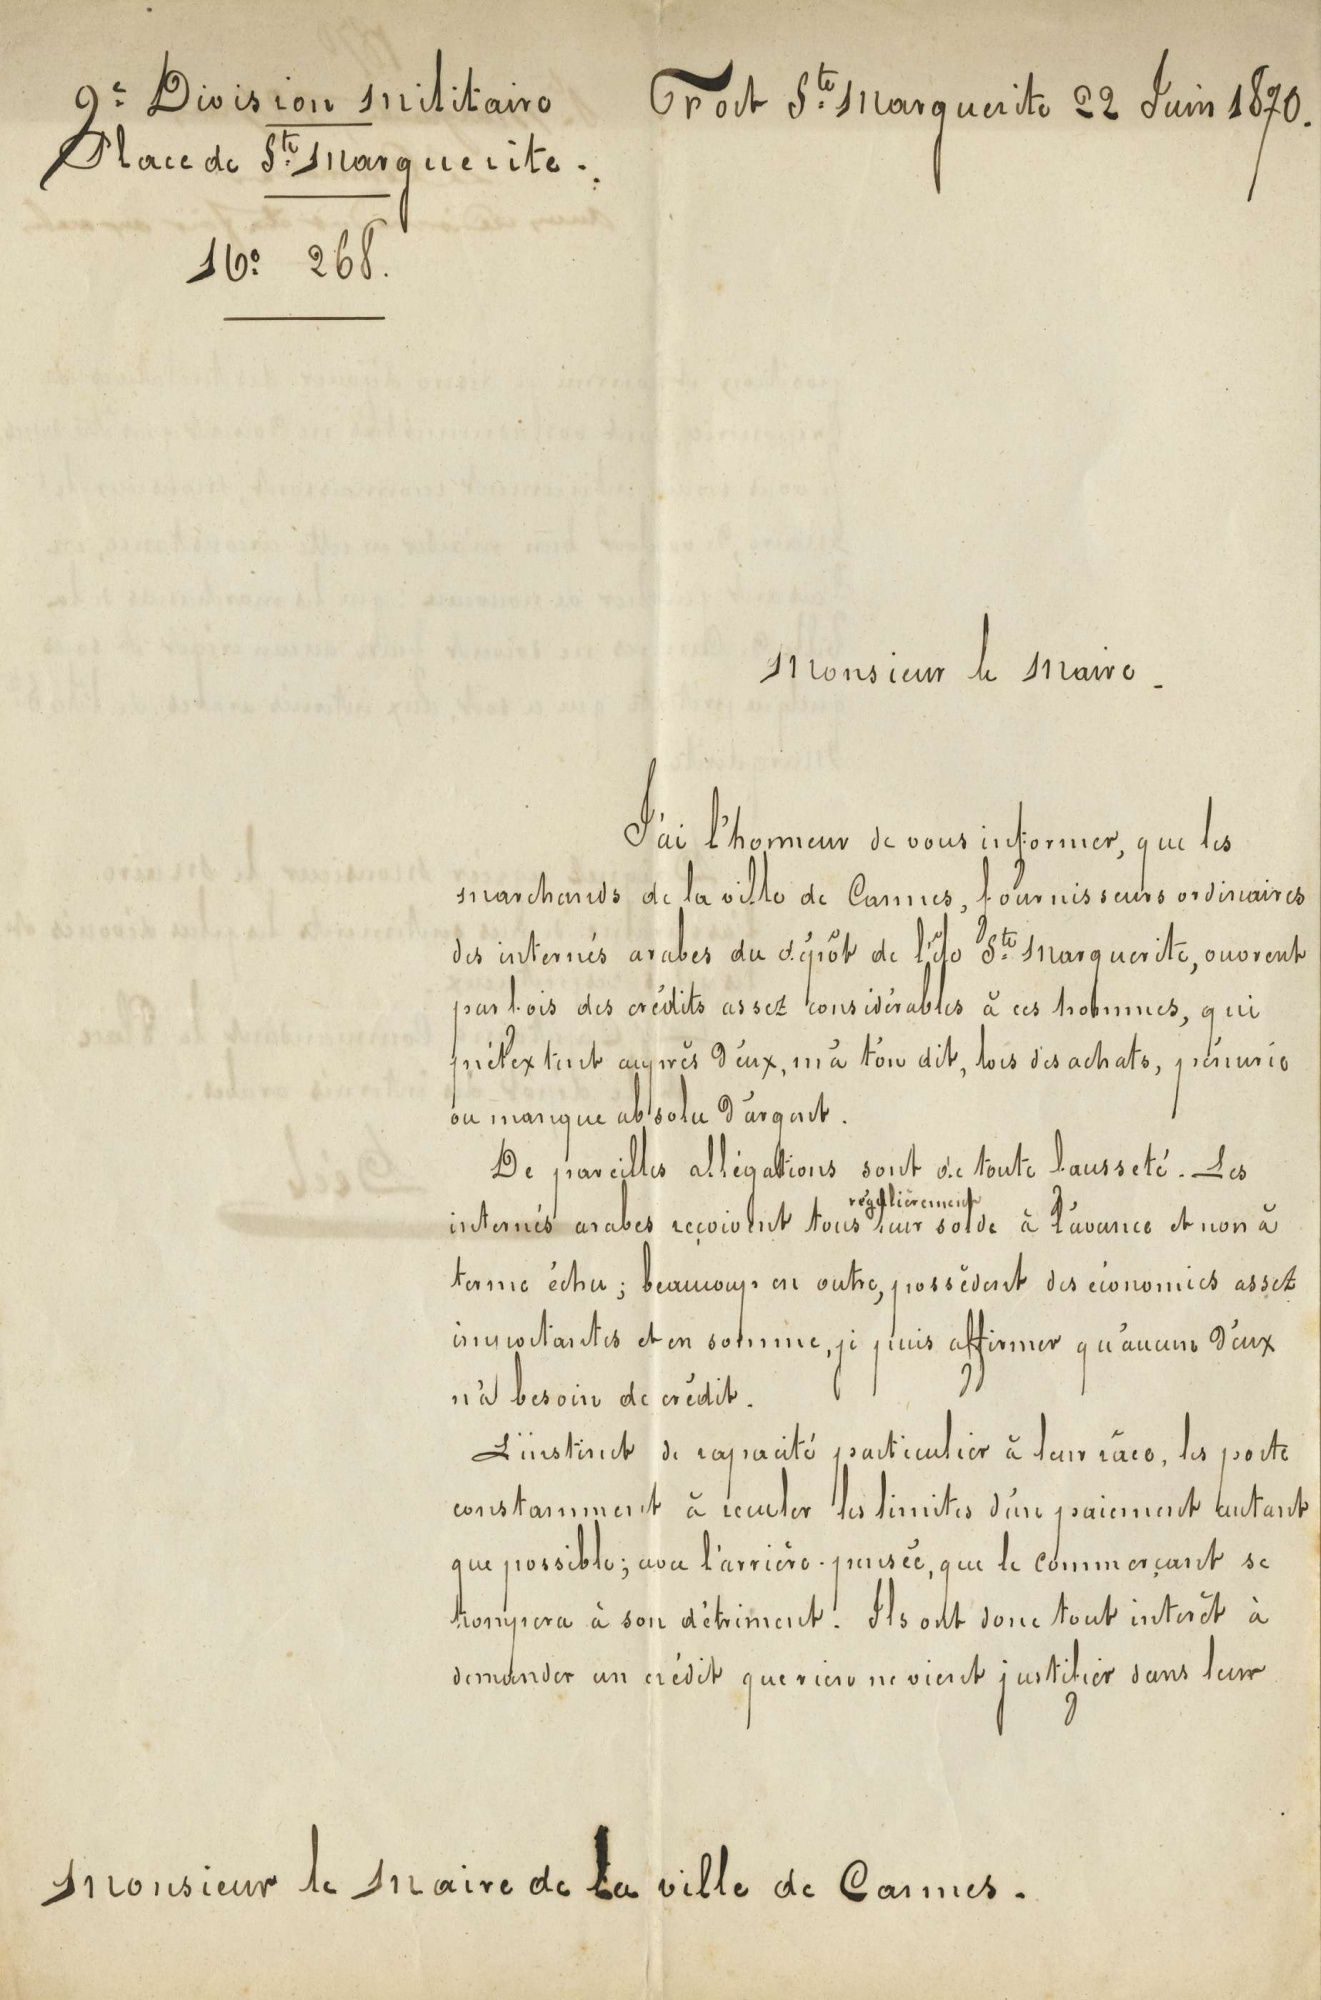 9e Division Militaire
Place de Ste Marguerite.
No 268.
Fort Ste Marguerite 22 Juin 1870.
Monsieur le Maire.
J'ai l'honneur de vous informer, que les
marchands de la ville de Cannes, fournisseurs ordinaires
des internés arabes du dépôt de l'île Ste Marguerite, ouvrent
parfois des crédits assez considérables à ces hommes, qui
prétextent auprès d'eux, m'a t'on dit, lors des achats, pénurie
ou manque absolu d'argent.
De pareilles allégations sont de toute fausseté. Les
internés arabes reçoivent tous régulièrement leur solde à l'avance et non à
terme échu; beaucoup en outre, possèdent des économies assez
importantes et en somme, je puis affirmer qu'aucun d'eux
n'a besoin de crédit.
L'instinct de rapacité particulier à leur race, les porte
constamment à reculer les limites d'un paiement autant
que possible; avec l'arrière-pensée, que le commerçant se
trompera à son détriment. Ils ont donc tout intérêt à
demander un crédit que rien ne vient justifier dans leur
Monsieur le Maire de la ville de Cannes.